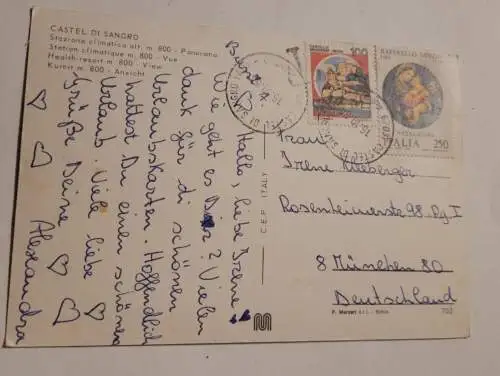 CASTEL DI SANGRO
Stazione climatica alt. m. 800 - Panorama
Station climatique m. 800 - Vue
Health-resort m. 800 - View
Kurort m. 800 - Ansicht
Hallo, liebe Irene!
Wie geht es Dir? Vielen
dank für di schönen
Urlaubskarten. Hoffendlich
hattest Du einen schönen
Urlaub. Viele liebe
Grüße Deine Alexandra
C.E.P. ITALY
100
RAFFAELLO SANZIO
ITALIA 250
CASTEL DI SANGRO
Frau
Irene
Rosenheimerstr 98 Rg I
8 München 80
Deutschland
P. Marzari s.r.l. - Schio
702